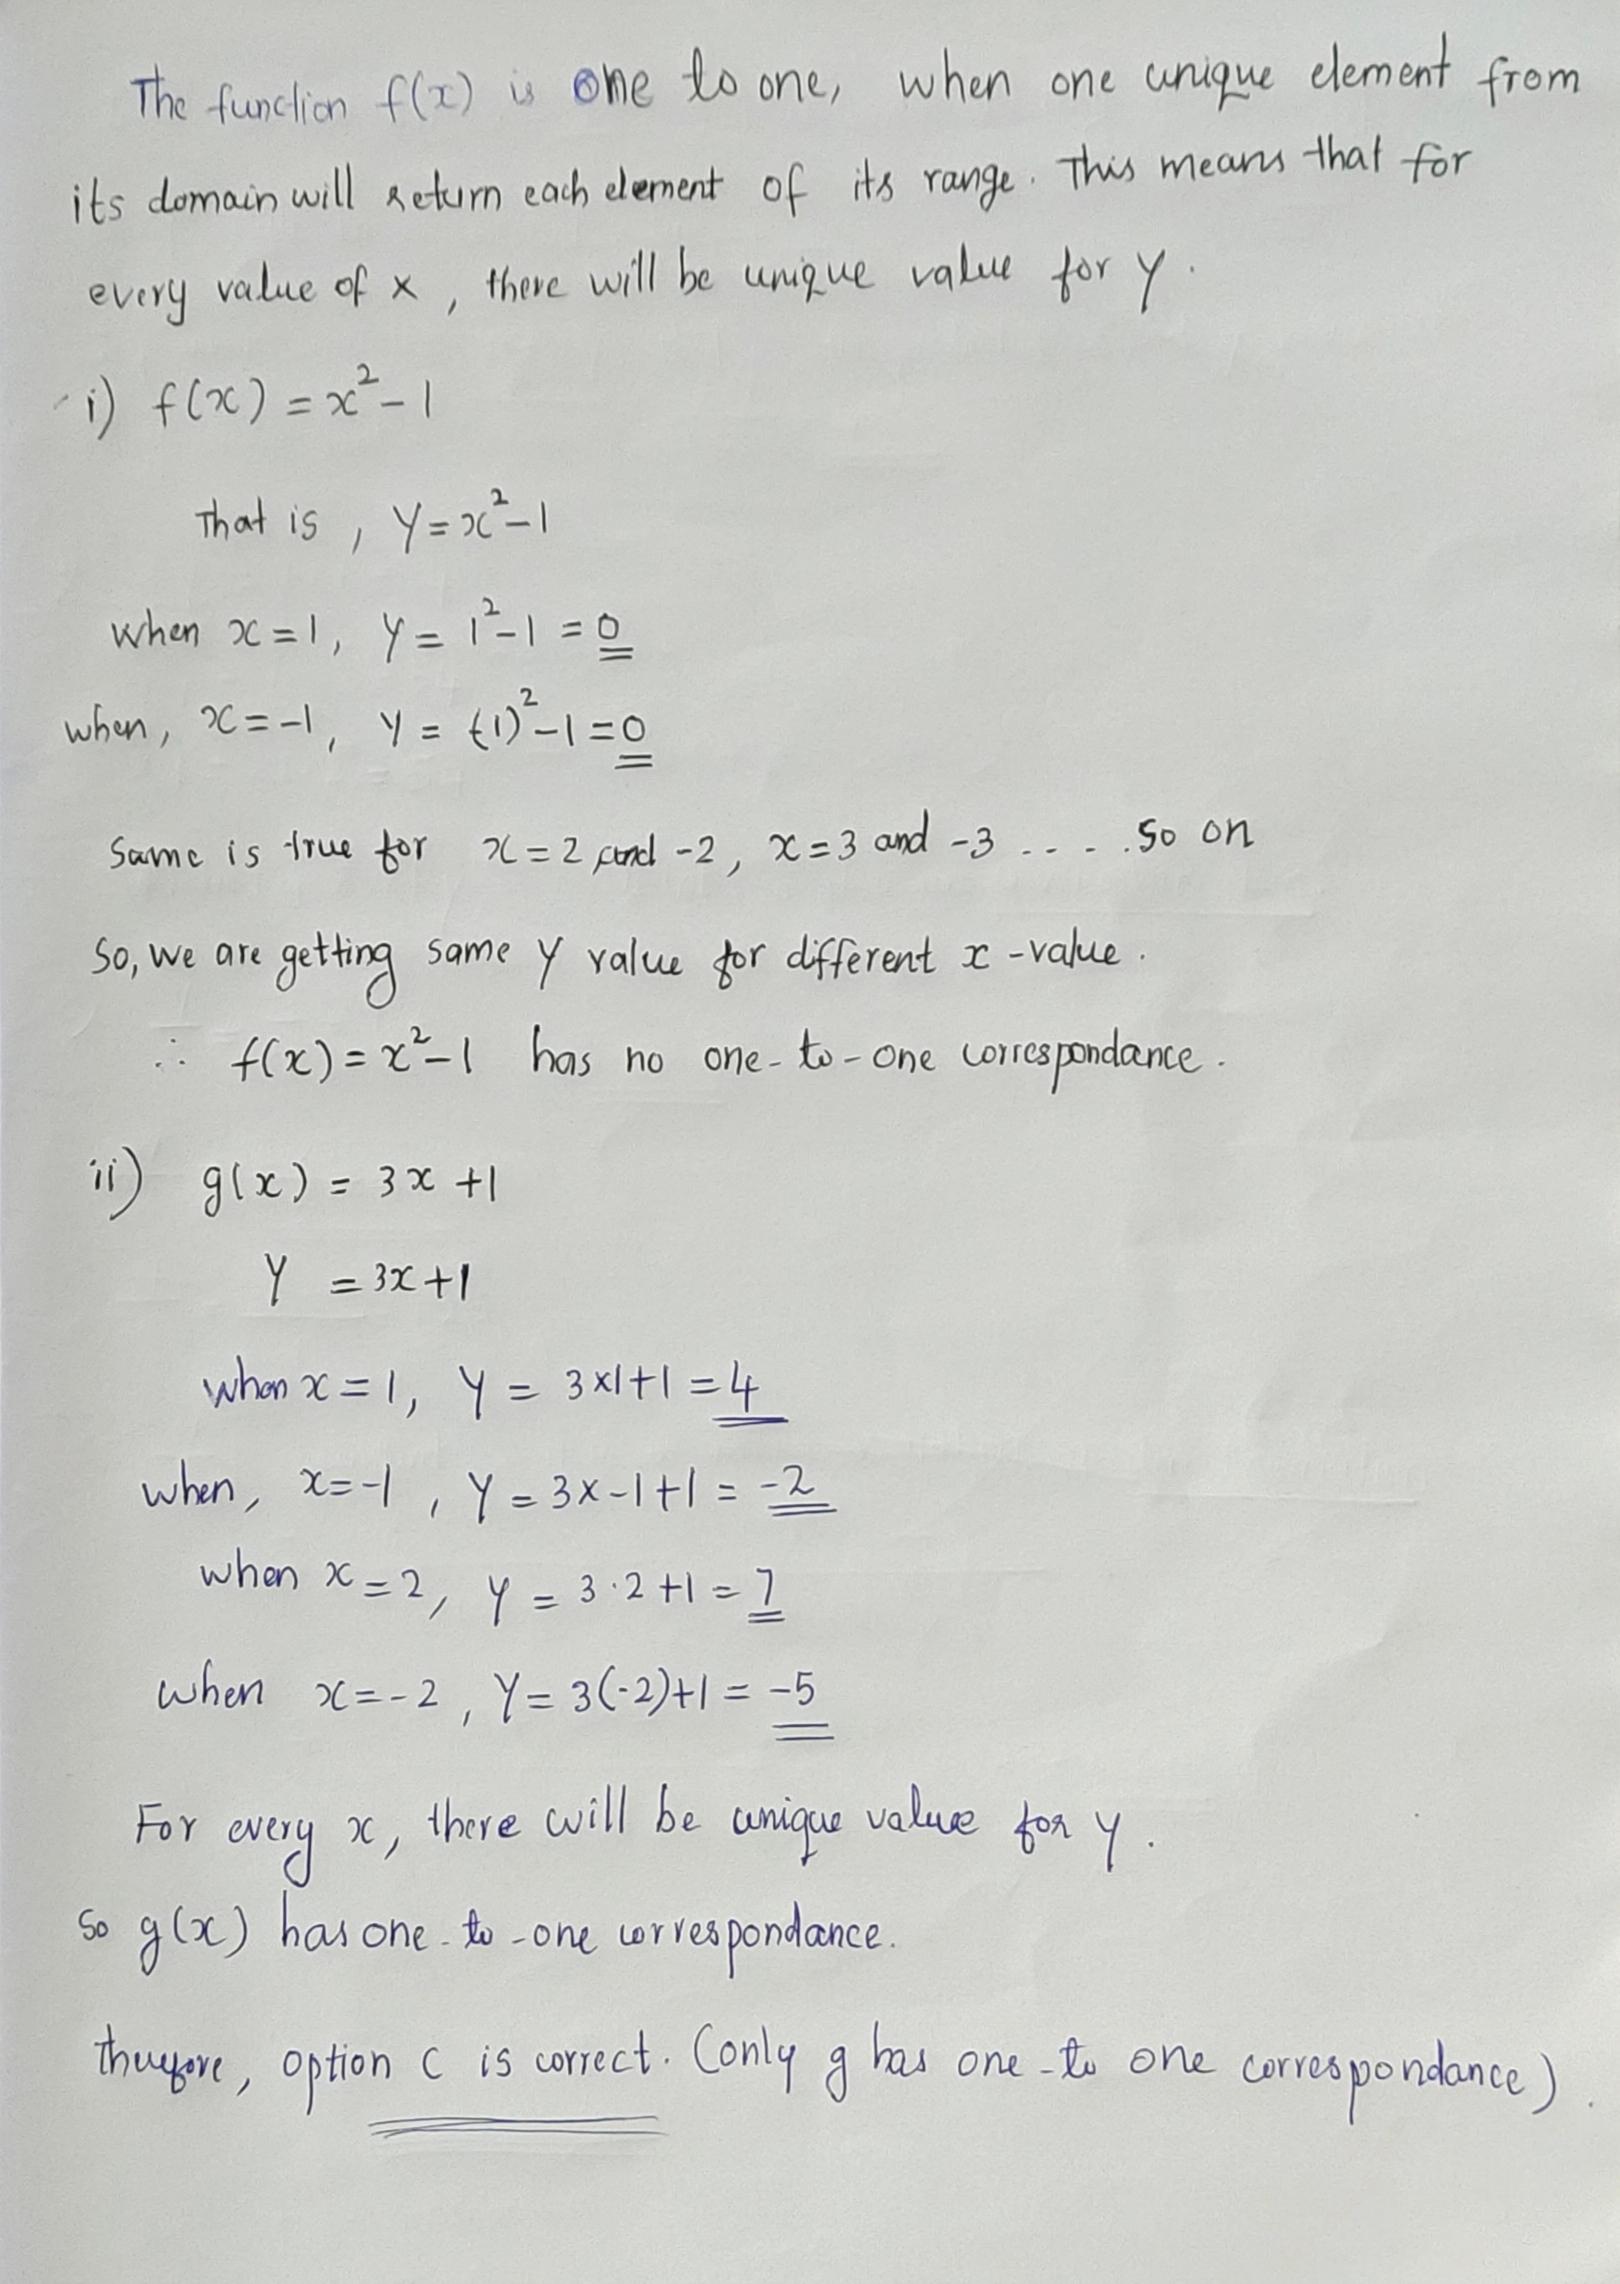 The function f(x) is one to one, when one unique element from
its domain will return each element of its range. This means that for
every value of x, there will be unique value for y.
i) f(x) = x²-1
That is, y = x²-1
when x = 1, y = 1²-1 = 0
when, x = -1, y = (-1)²-1 = 0
Same is true for x = 2 and -2, x = 3 and -3 .....so on
So, we are getting same y value for different x-value.
∴ f(x) = x²-1 has no one-to-one correspondance.
ii) g(x) = 3x+1
y = 3x+1
when x = 1, y = 3×1+1 = 4
when, x = -1, y = 3×-1+1 = -2
when x = 2, y = 3·2+1 = 7
when x = -2, y = 3(-2)+1 = -5
For every x, there will be unique value for y.
So g(x) has one-to-one correspondance.
therefore, option C is correct. (only g has one-to one correspondance).